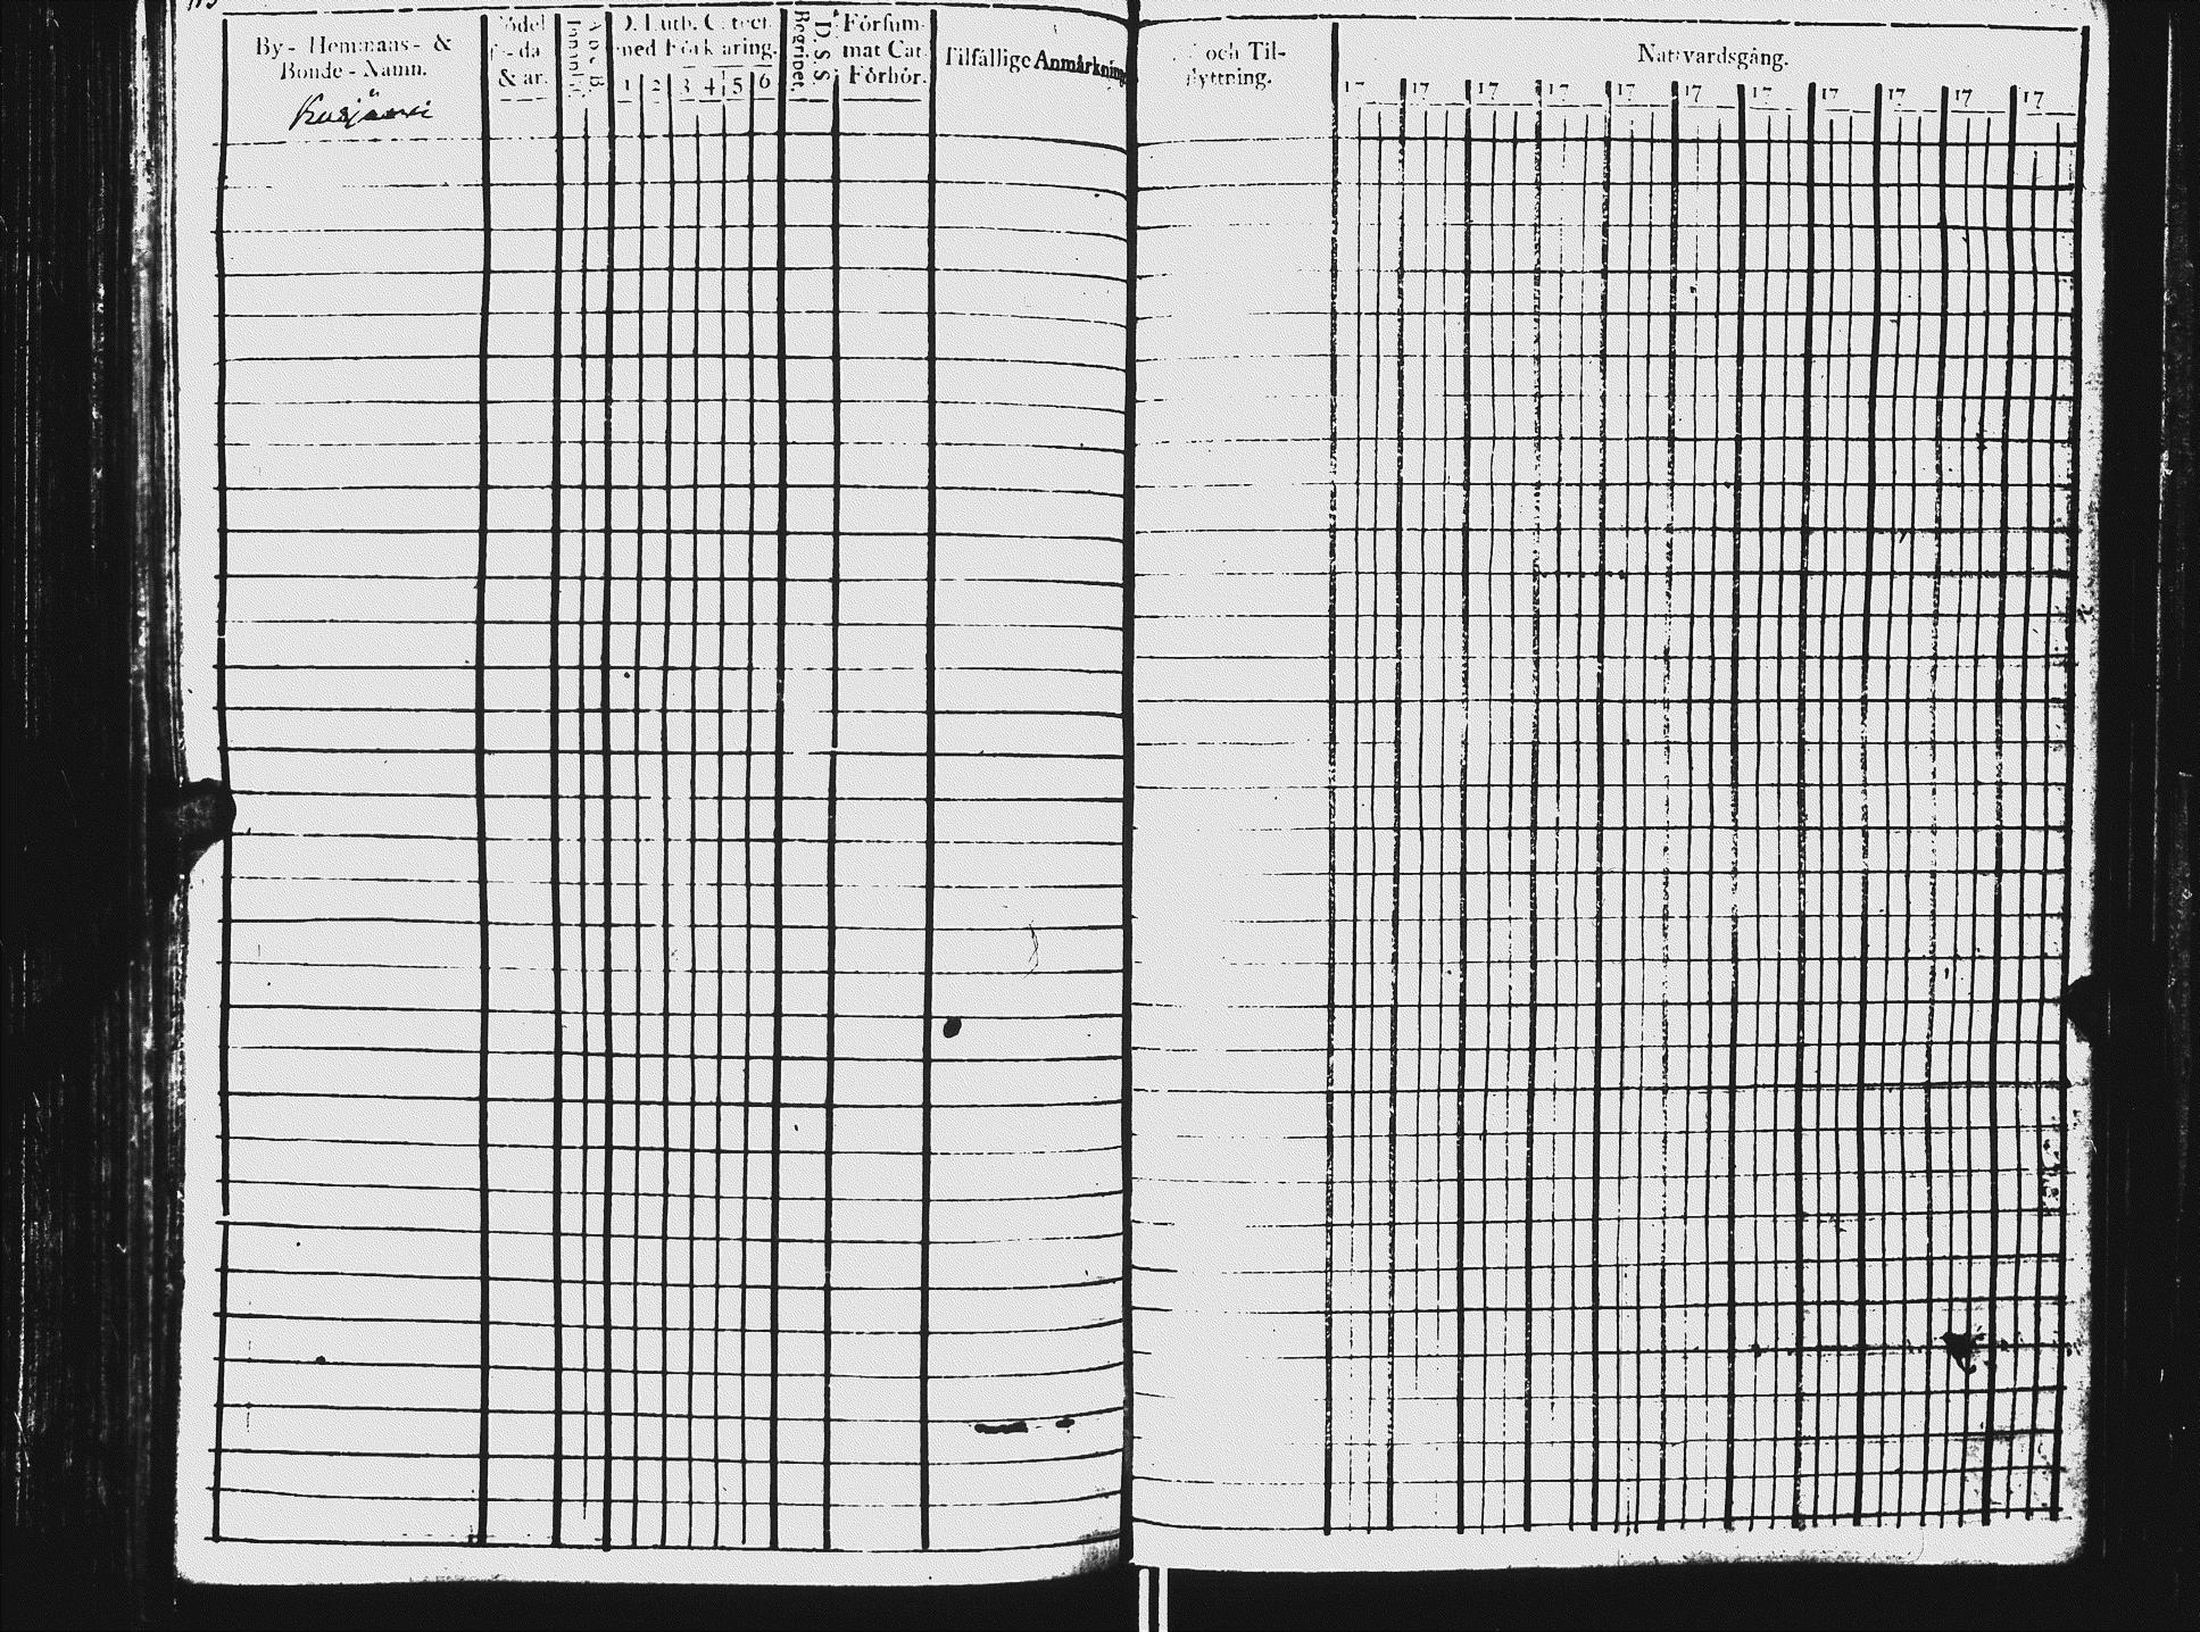 By- Hemmans- &
Bonde-Namn.
Kusjärvi
& år.
A. B. C.
D. Luth. Catech.
med Förklaring.
1 2 3 4 5 6
Begripet.
D. S. S.
Försum-
mat Cat.
Förhör.
Tilfällige Anmärkning
och Til-
flyttning.
Nattvardsgång.
17 17 17 17 17 17 17 17 17 17 17